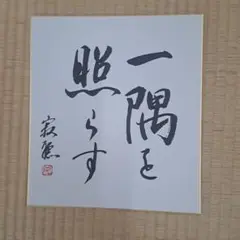 一隅を
照らす
寂聴